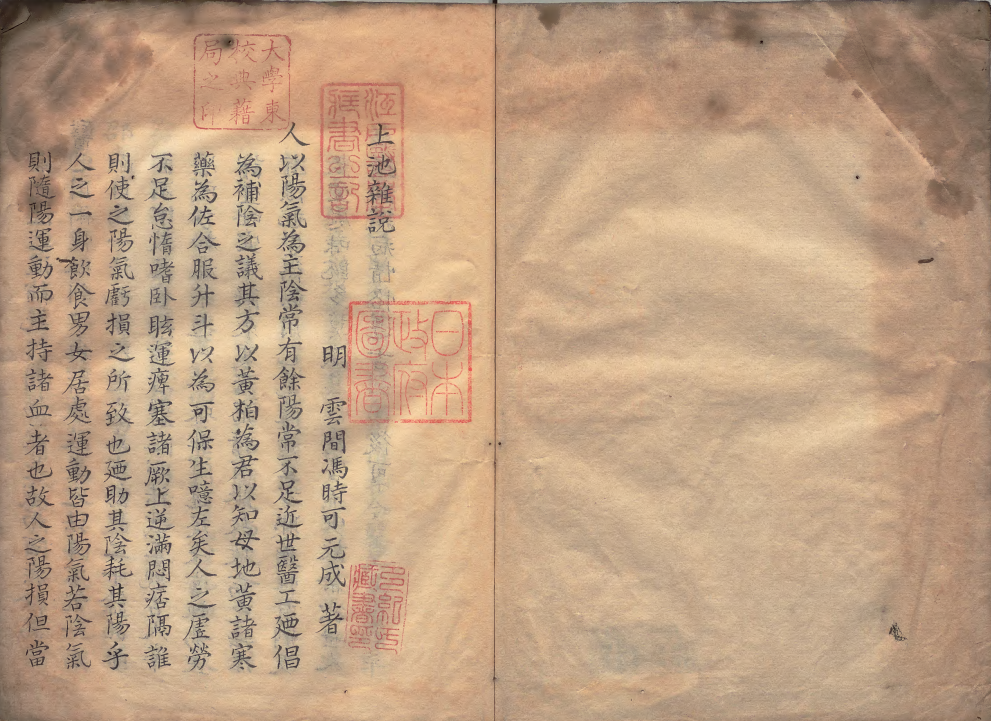 上池雜說
明 雲間馮時可元成 著
人以陽氣為主陰常有餘陽常不足近世醫工廼倡
為補陰之議其方以黃柏為君以知母地黃諸寒
藥為佐合服升斗以為可保生噫左矣人之虛勞
不足怠惰嗜卧眩運痺塞諸厥上逆滿悶痞隔誰
則使之陽氣虧損之所致也廼助其陰耗其陽乎
人之一身飲食男女居處運動皆由陽氣若陰氣
則隨陽運動而主持諸血者也故人之陽損但當
大學東
校典藉
局之印
日本
政府
圖書